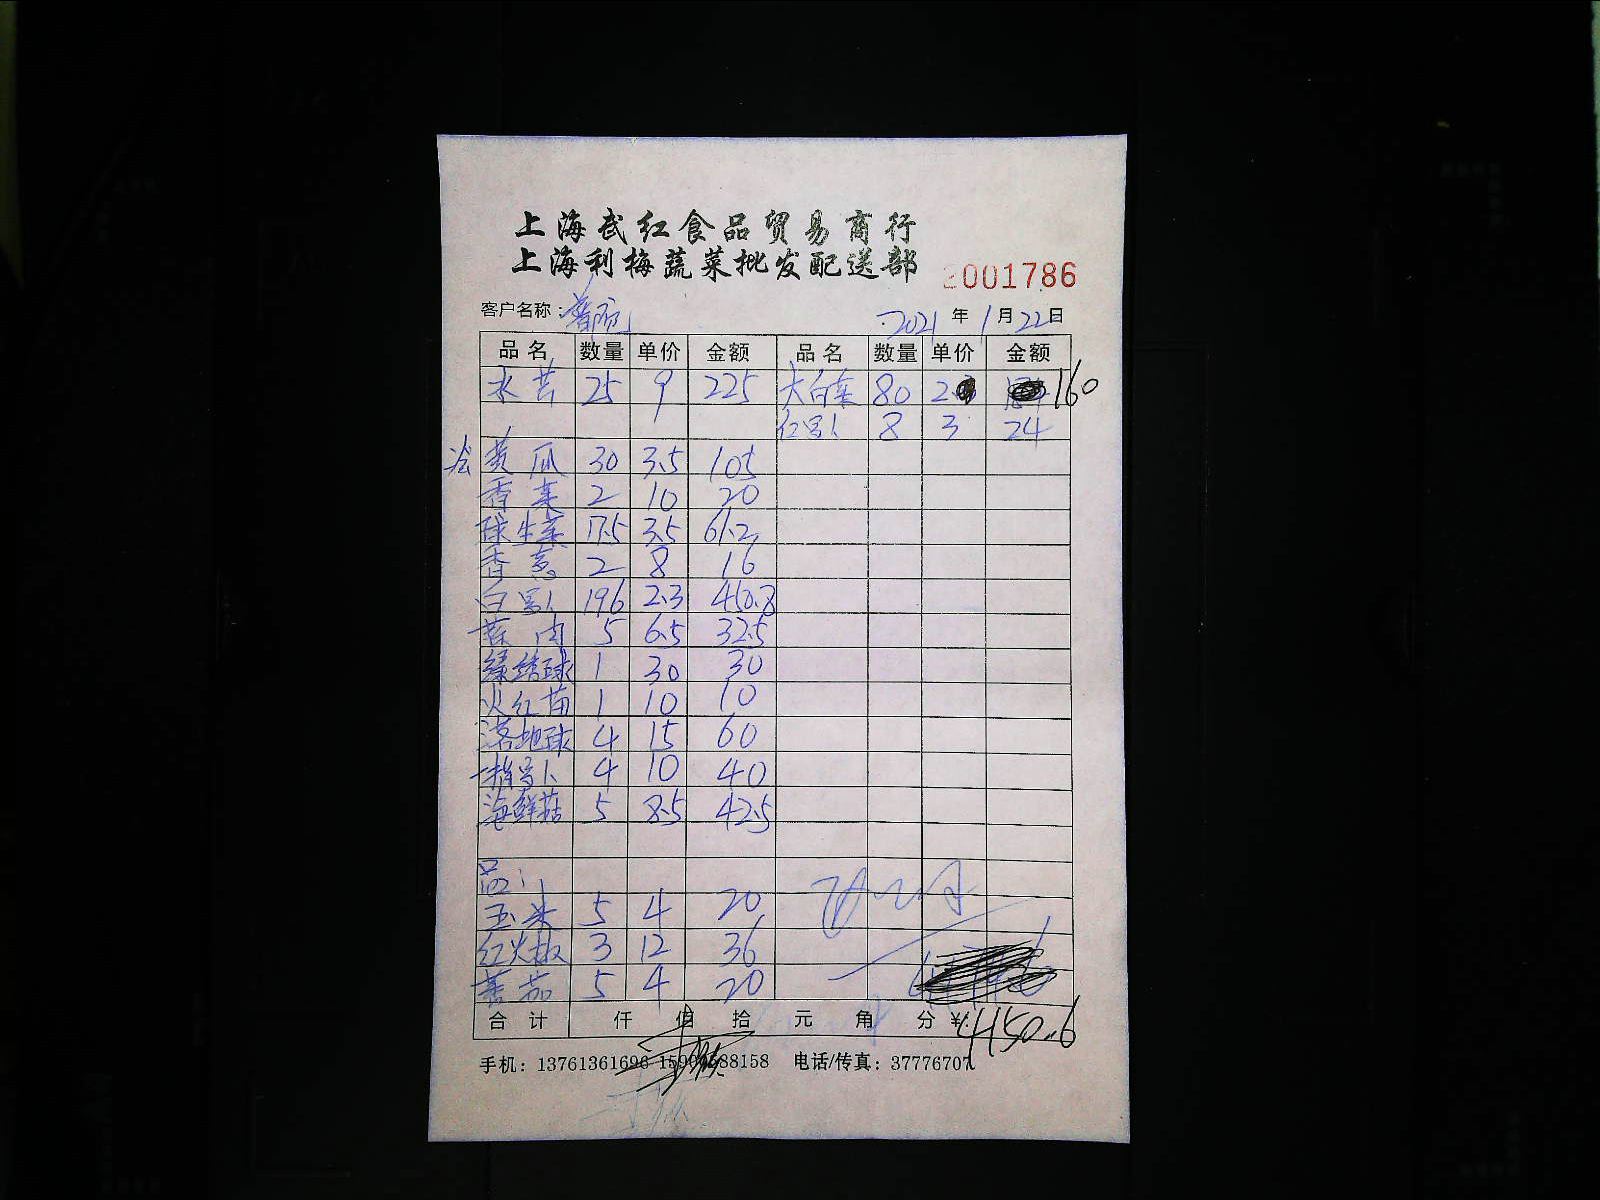 上海武红食品贸易商行
上海利梅蔬菜批发配送部
2001786
客户名称：
2021年1月22日
品名 数量 单价 金额 品名 数量 单价 金额
水芹 25 9 225 大白菜 80 2 160
红罗卜 8 3 24
黄瓜 30 3.5 105
香菜 2 10 20
球生菜 17.5 3.5 61.2
香葱 2 8 16
白罗卜 196 2.3 450.8
蒜肉 5 6.5 32.5
绿绣球 1 30 30
火红苗 1 10 10
落地球 4 15 60
指罗卜 4 10 40
海鲜菇 5 8.5 42.5
玉米 5 4 20
红火椒 3 12 36
蕃茄 5 4 20
合计 仟 佰 拾 元 角 分 ¥: 4150.6
手机：13761361696 15900588158 电话/传真：37776707